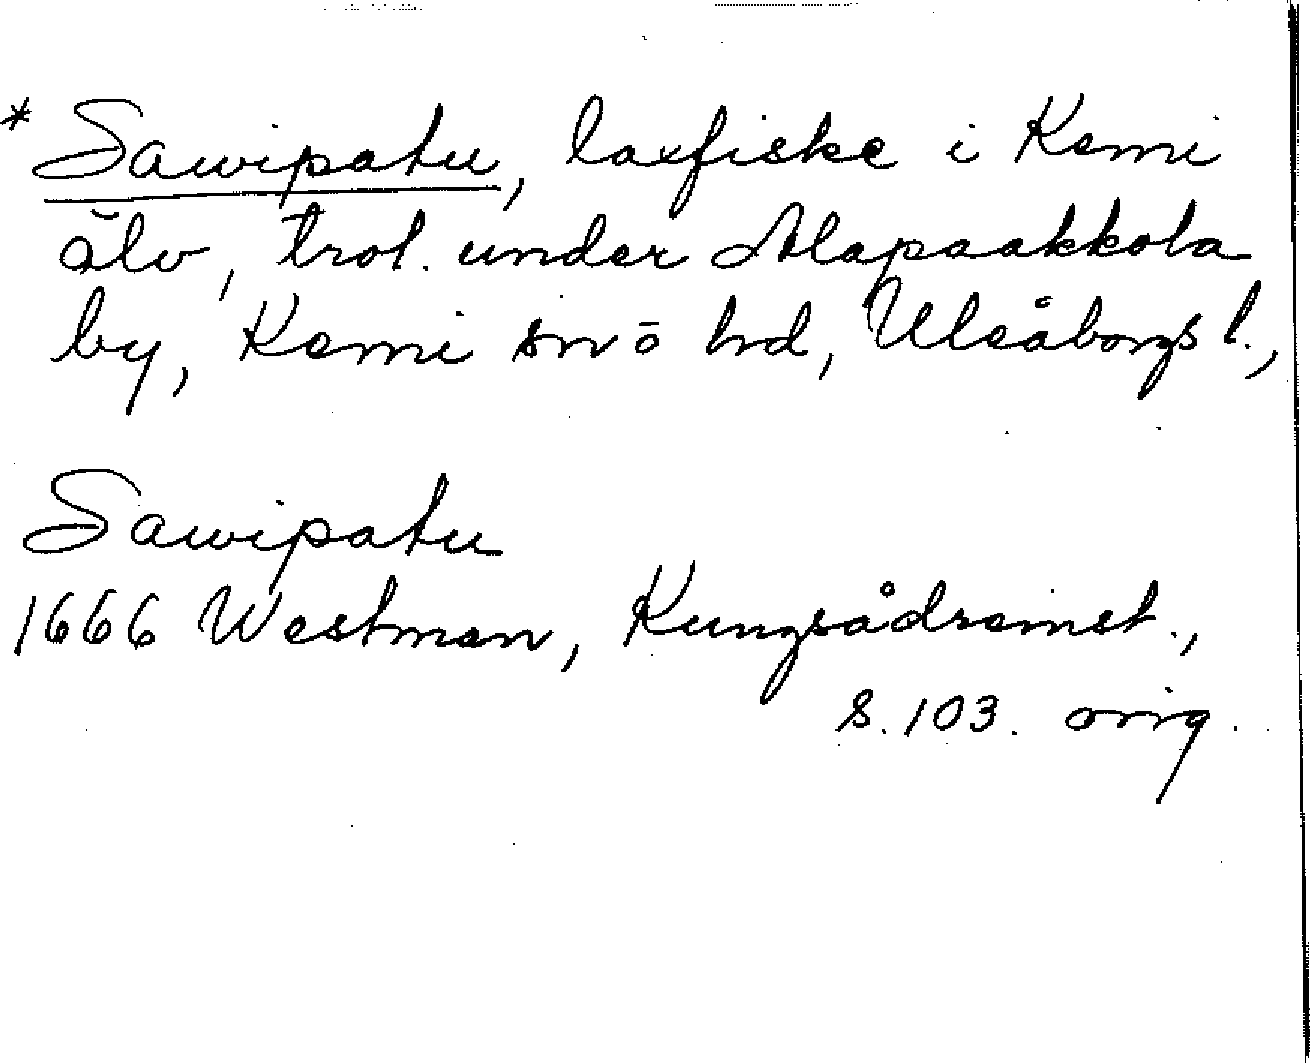 * Sawipatu, laxfiske i Kemi
älv, trol. under Alapaakkola
by, Kemi sn o hd, Uleåborgs l.,
Sawipatu
1666 Westman, Kungsådreinst.,
s. 103. orig.